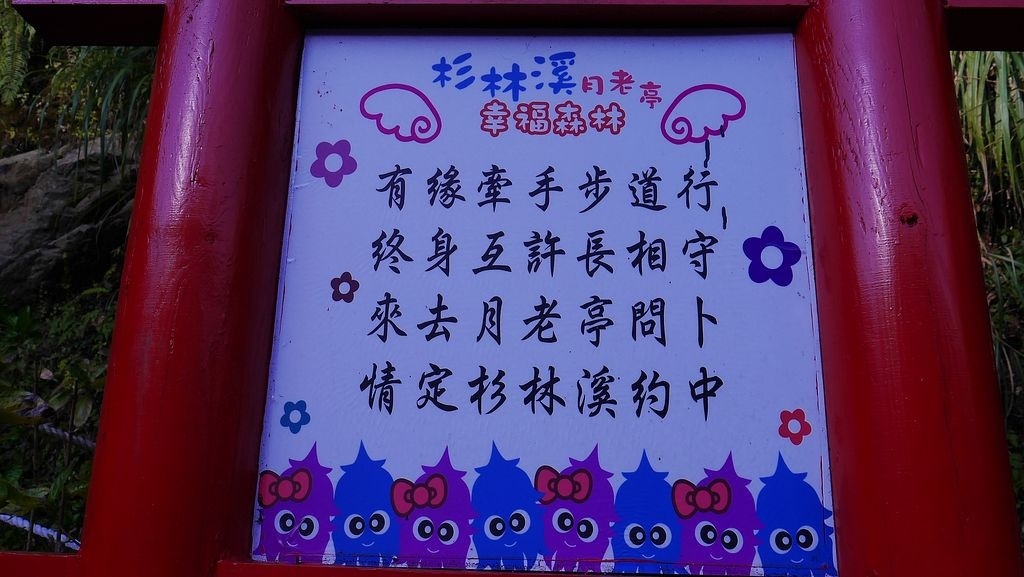 杉林溪月老亭
幸福森林
有緣牽手步道行
終身互許長相守
來去月老亭問卜
情定杉林溪約中